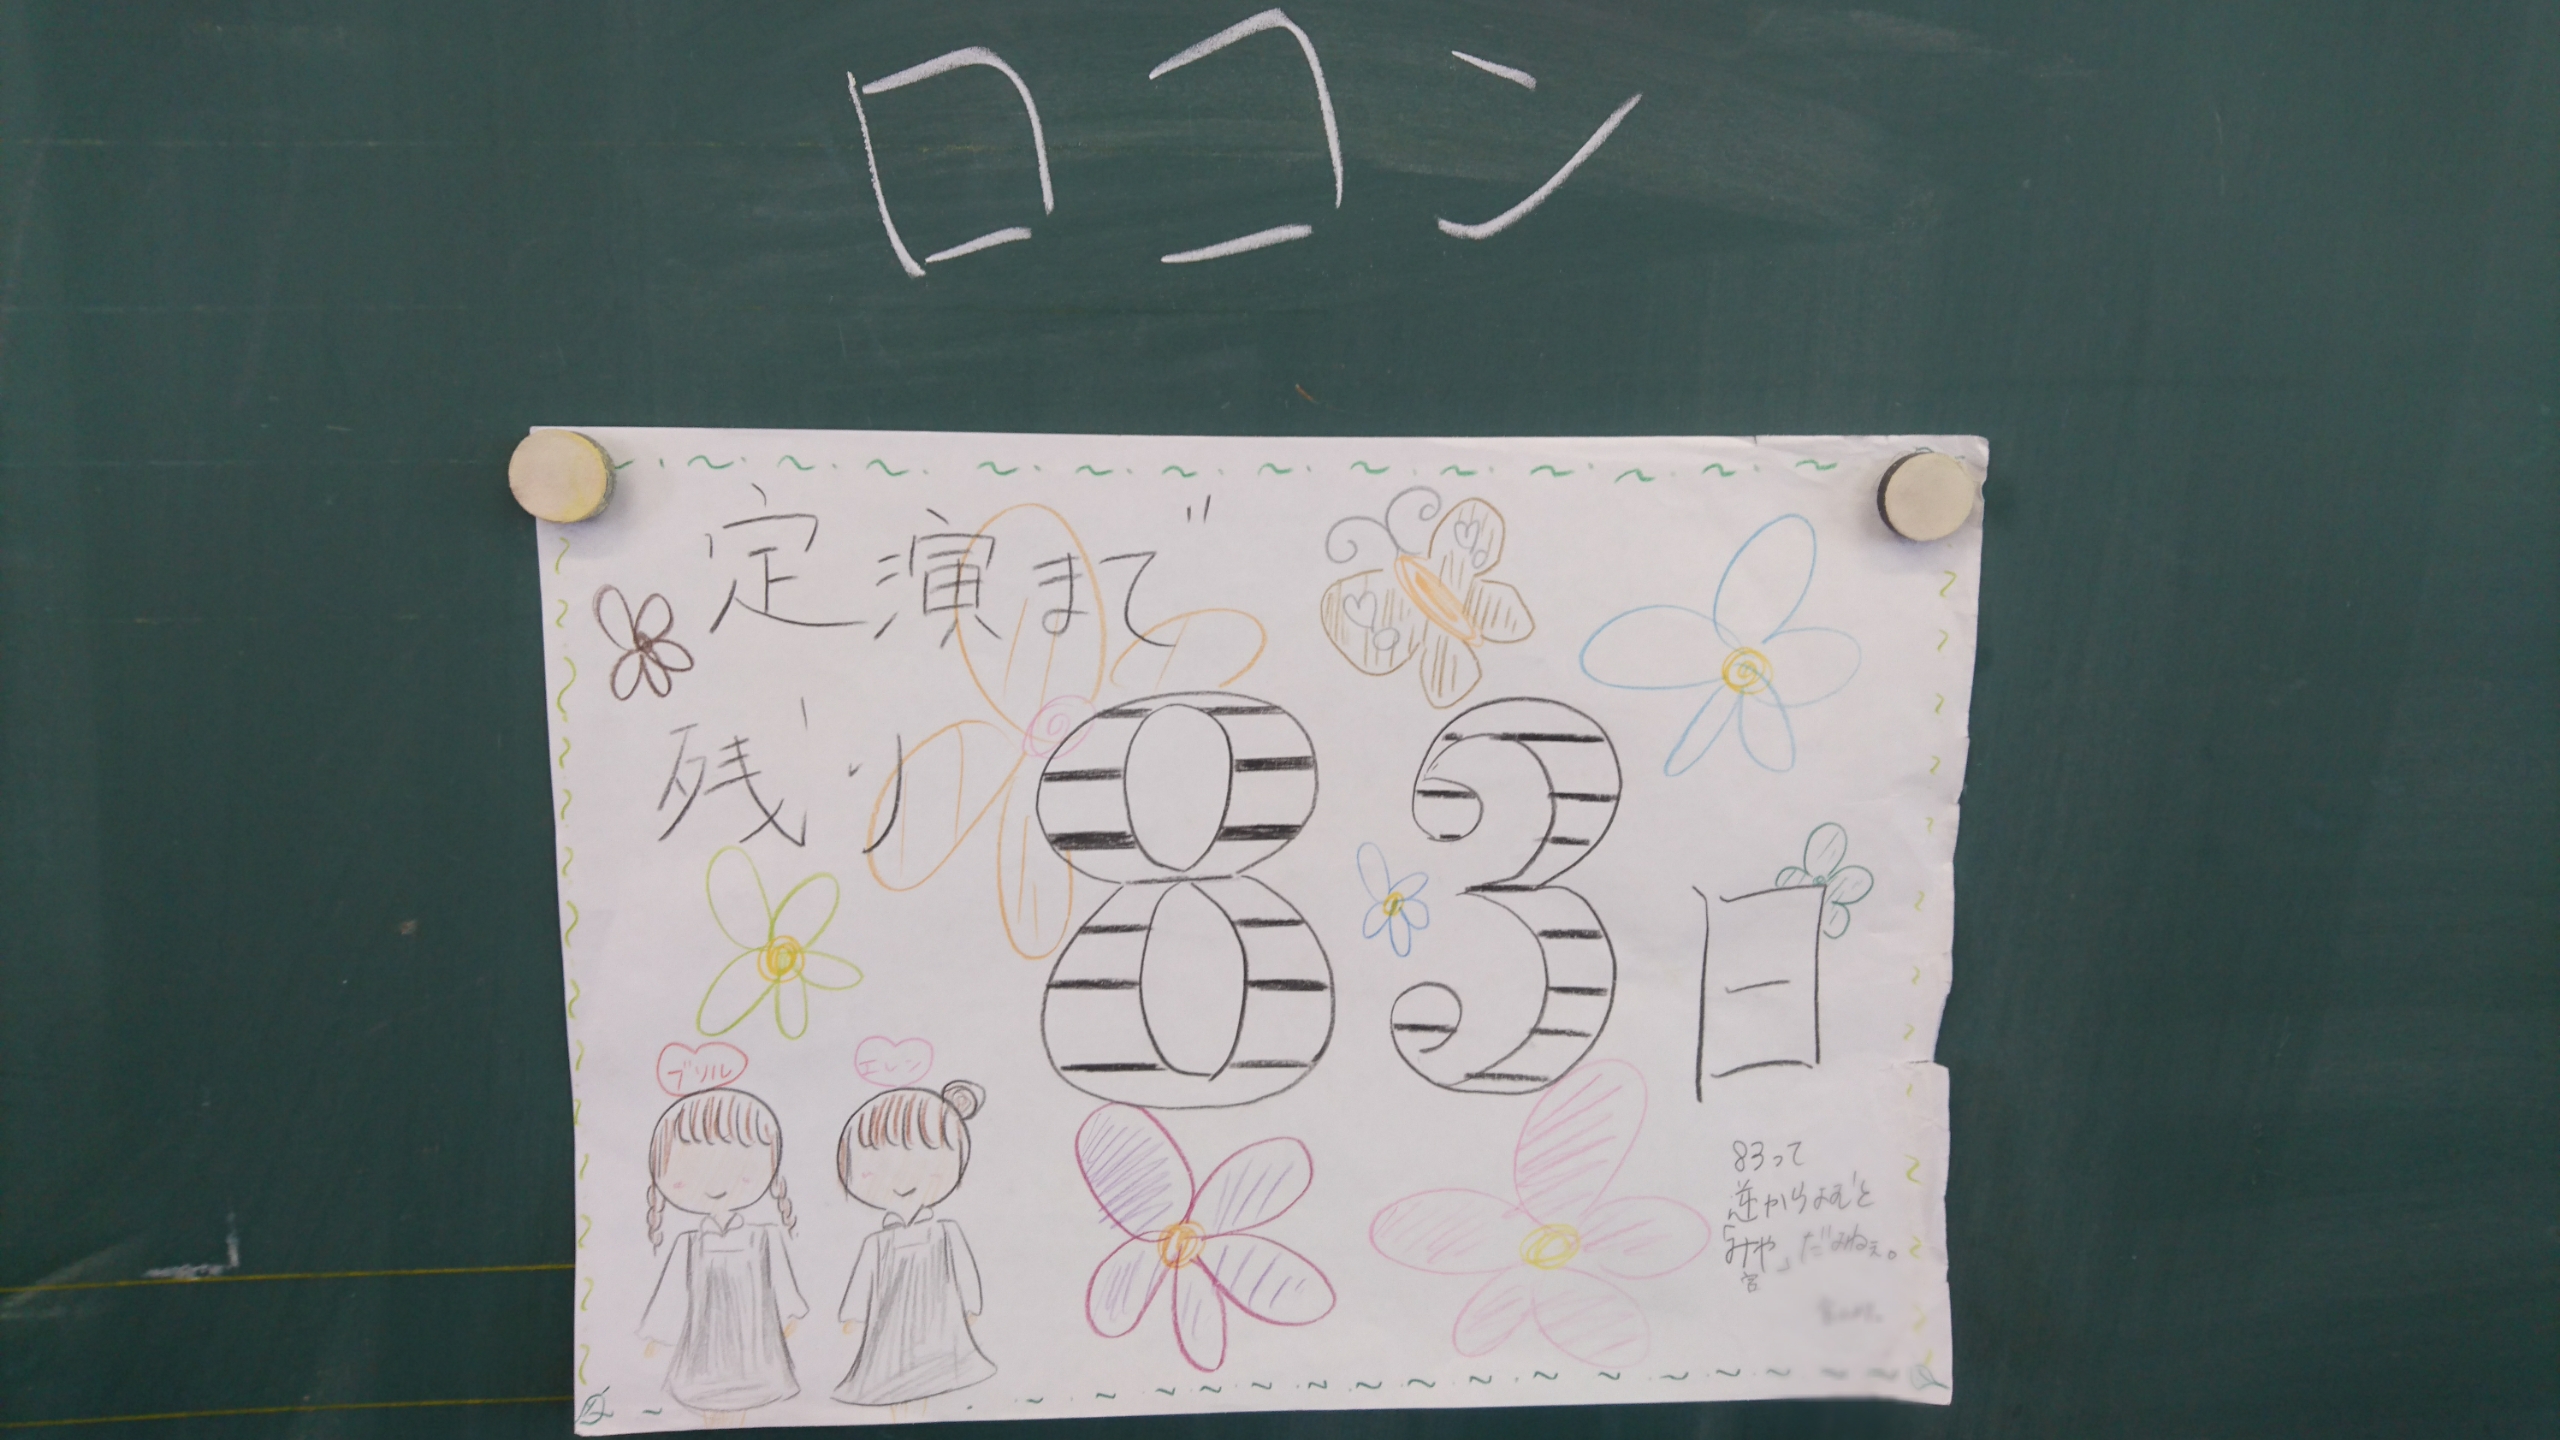 ロコン
定演まで
残り 83日
ブリル
エレン
83って
逆からよむと
「みや」だみねぇ。
宮